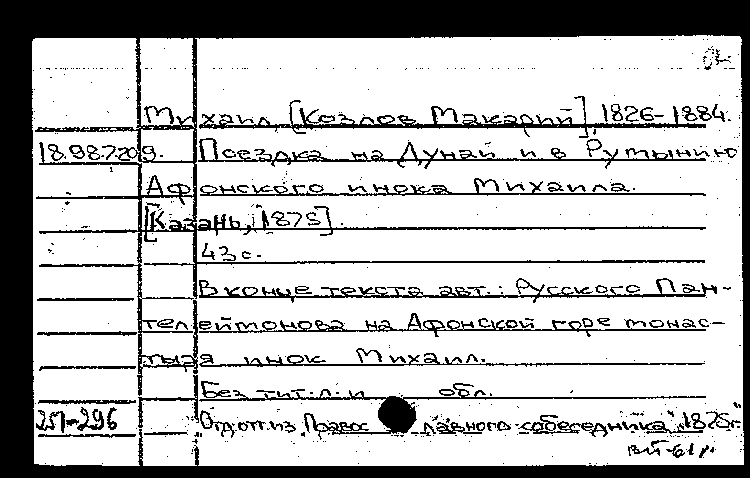 Михаил, [Козлов Макарий], 1826-1884.
18.98.7.209. Поездка на Дунай и в Румынию
Афонского инока Михаила.
[Казань, 1875].
43 с.
В конце текста авт.: Русского Пан-
телеймонова на Афонской горе монас-
тыря инок Михаил.
Без тит. л. и обл.
251-296 Отд. отт. из "Православного собеседника", 1875 г.